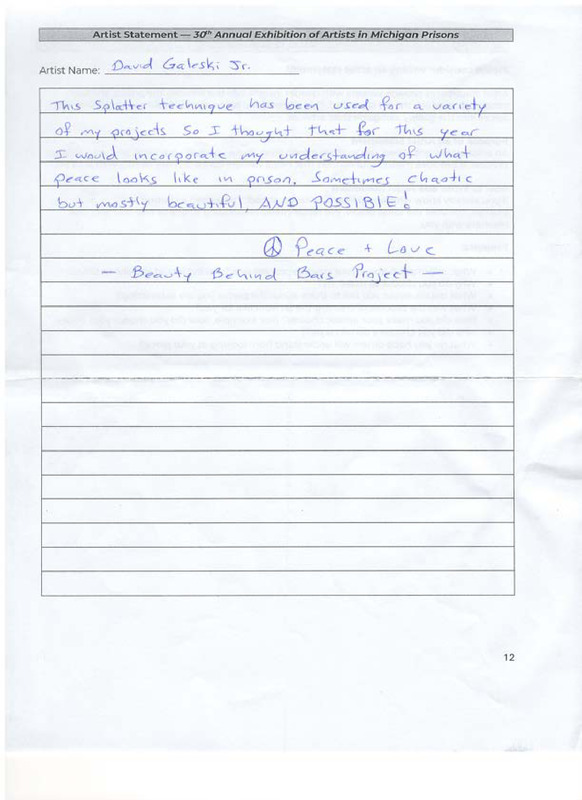 Artist Statement — 30th Annual Exhibition of Artists in Michigan Prisons
Artist Name: David Galeski Jr.
This Splatter technique has been used for a variety
of my projects So I thought that for This year
I would incorporate my understanding of what
peace looks like in prison. Sometimes chaotic
but mostly beautiful, AND POSSIBLE!
☮ Peace + Love
— Beauty Behind Bars Project —
12